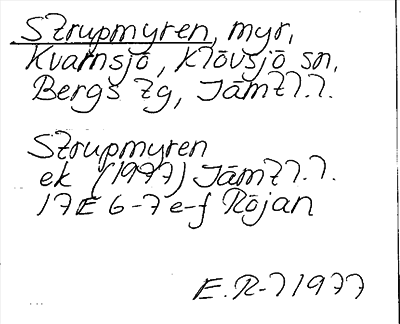 Strupmyren, myr,
Kvarnsjö, Klövsjö sn,
Bergs tg, Jämtl.l.
Strupmyren
ek (1977) Jämtl.l.
17E 6-7 e-f Röjan
E.R-l 1977